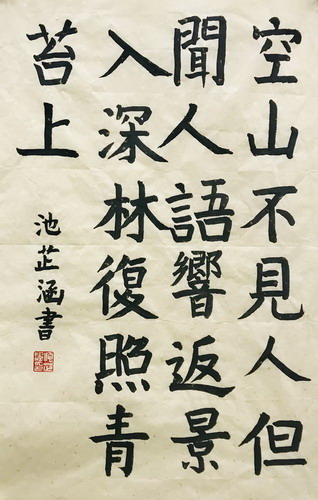 空山不見人但
聞人語響返景
入深林復照青
苔上
池芷涵書